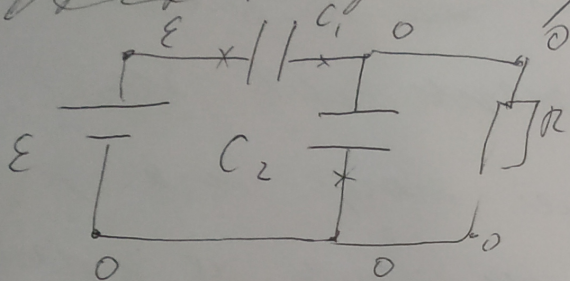 ε C₁ 0 0
ε C₂ R
0 0 0